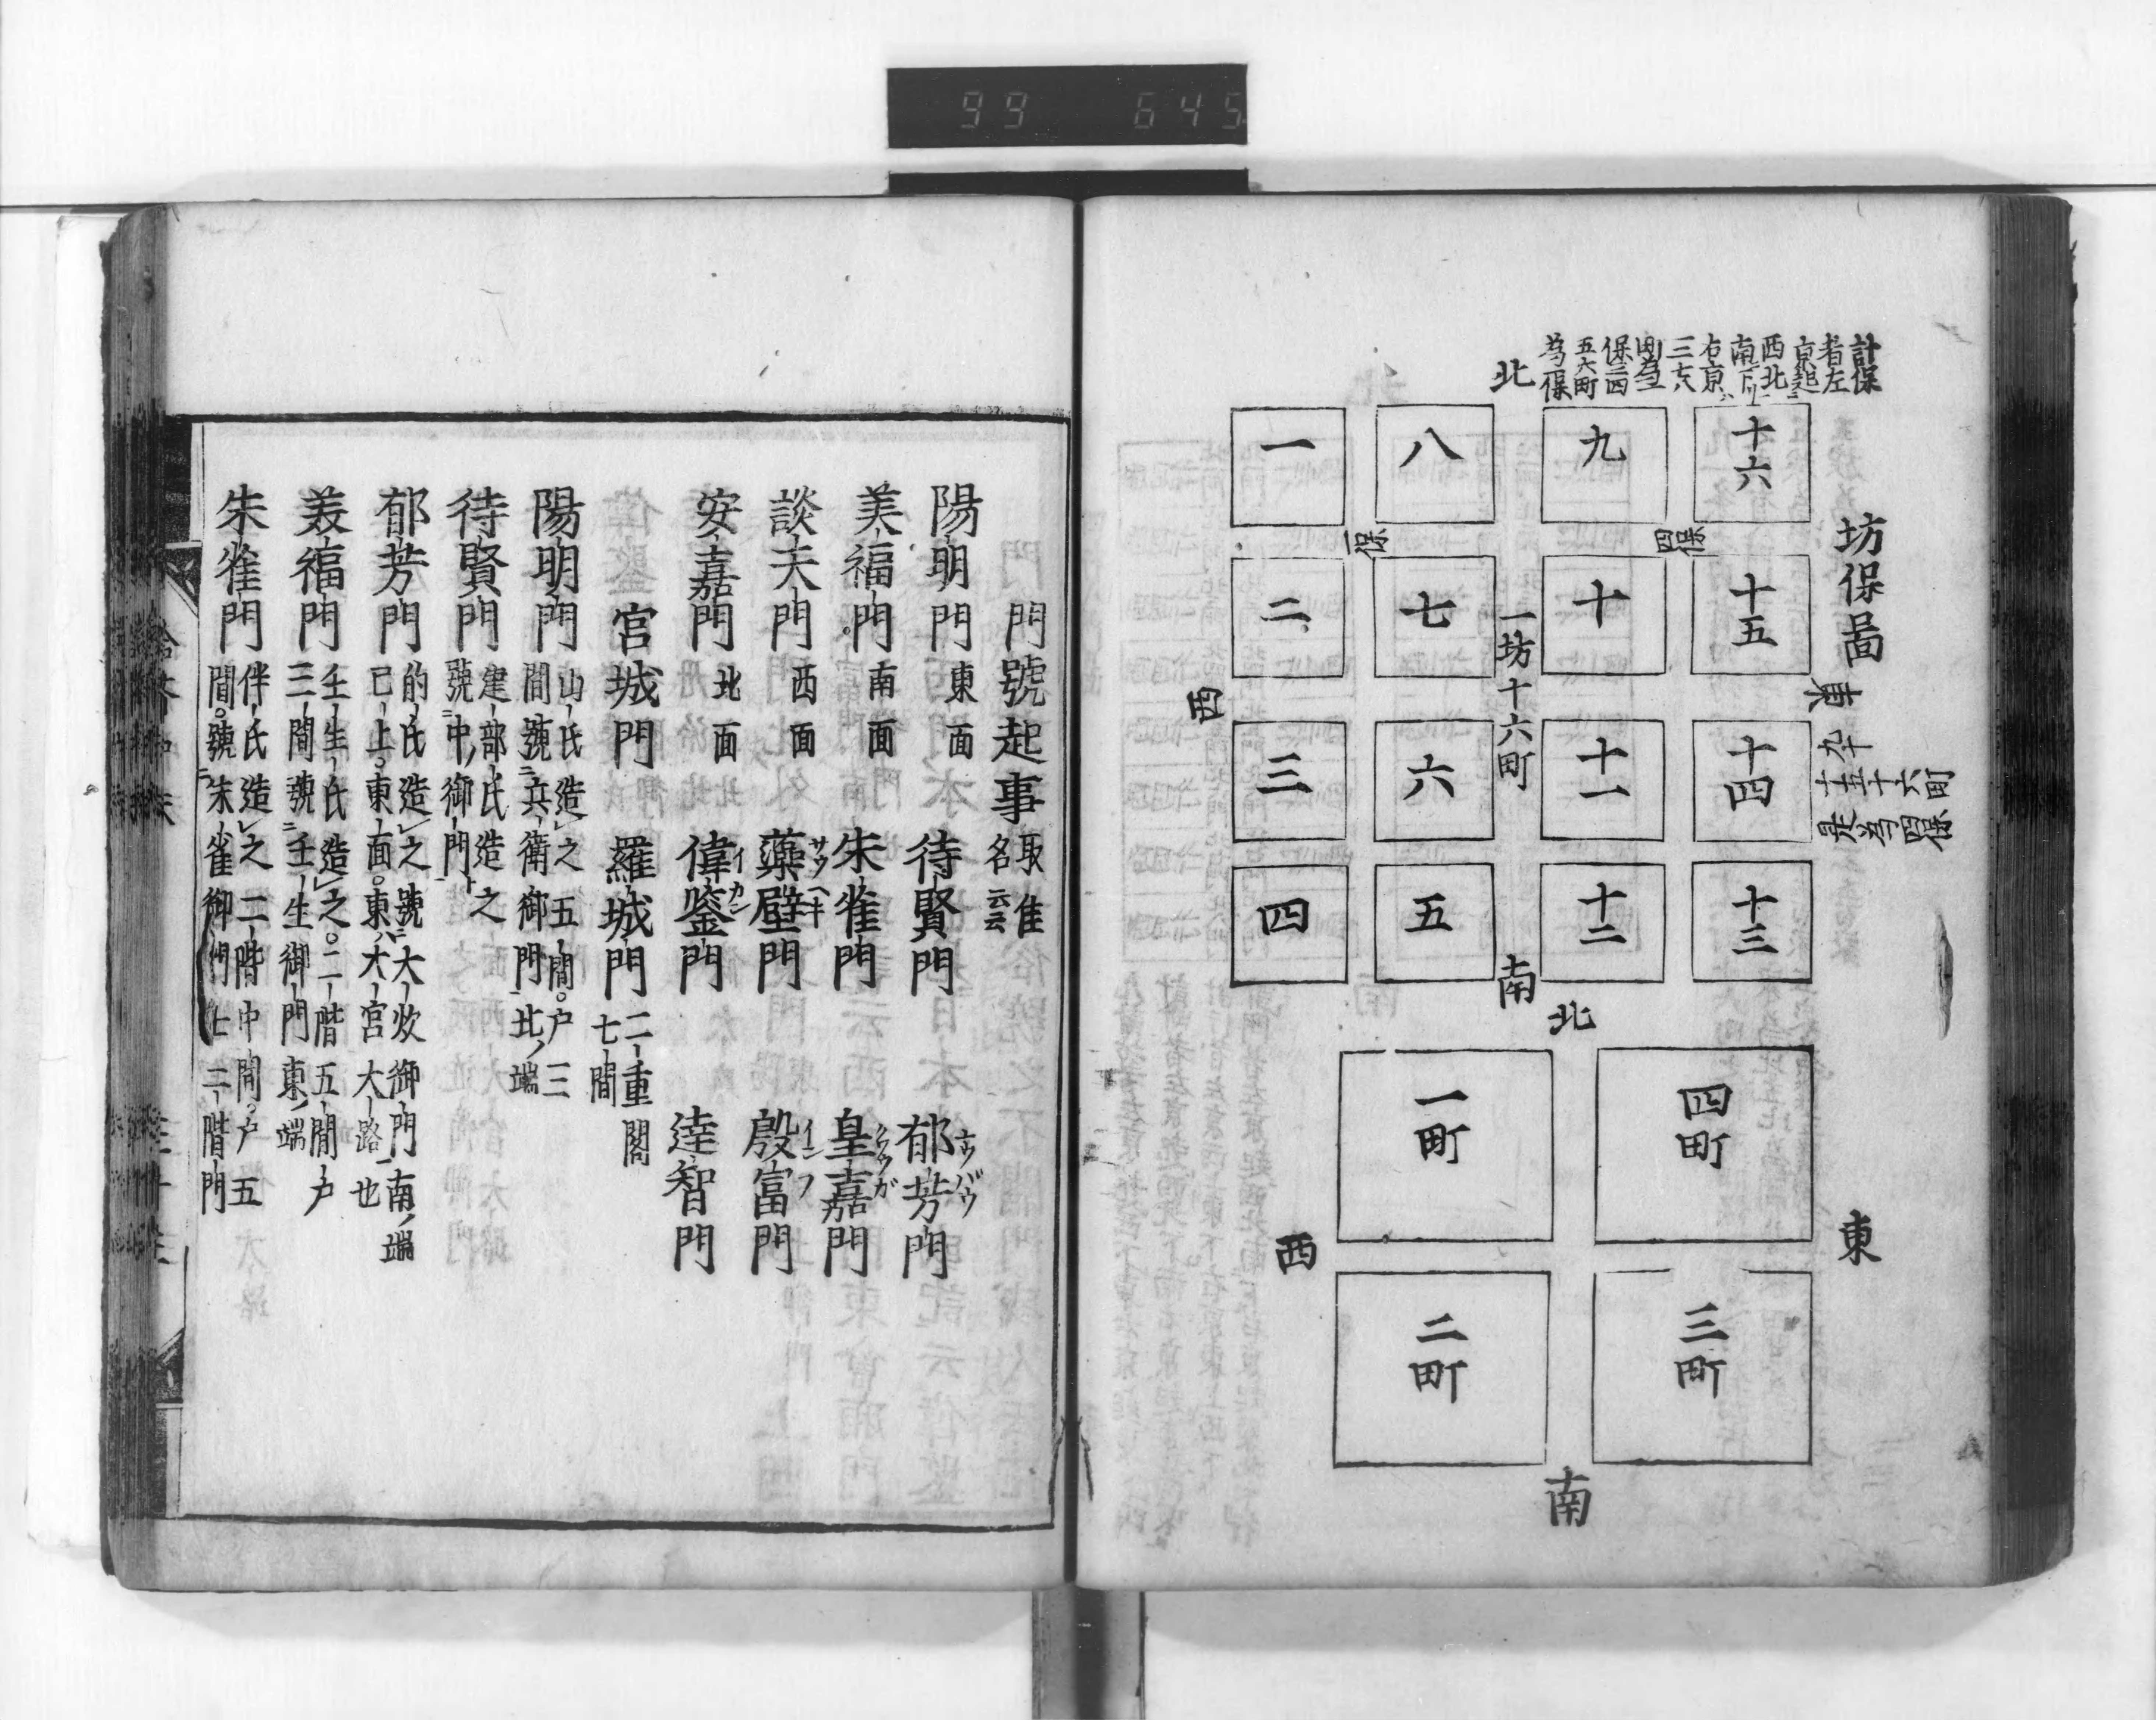 99 645
坊保啚
計保
者左
京起
西北
南行
右京
三七八
町為
保三四
五六町
為保
北
十六
九
八
一
四保
一保
十五
十
七
二
一坊十六町
東
西
九十
十五十六町
是為四保
十四
十一
六
三
十三
十二
五
四
南
北
四町
一町
東
西
三町
二町
南
門號起事
取准
名云云
陽明門 東面 待賢門 郁芳門
ホウ バウ
美福門 南面 朱雀門 皇嘉門
談天門 西面 藻壁門 殷富門
サウヘキ
インフ
安嘉門 北面 偉鑒門 達智門
イカン
宮城門 羅城門
二重閣
七間
陽明門
山氏造レ之 五間。戸三
間號ニ兵衛御門 北ノ端
待賢門
建部氏造之
號ニ中ノ御門ト
郁芳門
的氏造レ之 號ニ大炊御門 南ノ端
已上。東面。東ハ大宮大路 也
美福門
壬生氏造レ之。二階五間戸
三間號ニ壬生御門 東ノ端
朱雀門
伴氏造レ之 二階中間。戸五
間。號ニ朱雀御門 七 二階門